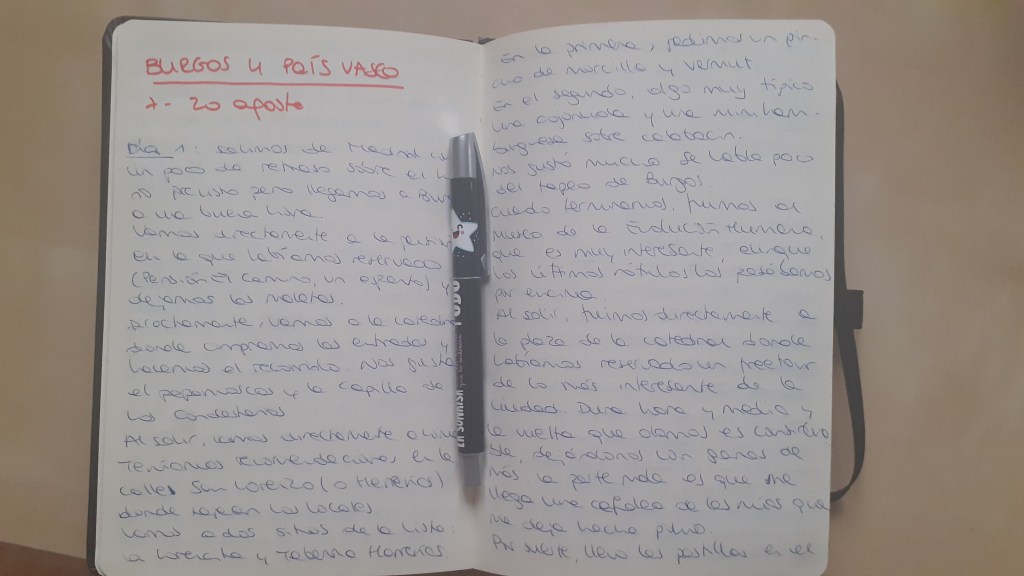 BURGOS Y PAÍS VASCO
7 - 20 agosto
Día 1: salimos de Madrid
un poco de retraso sobre el
no previsto pero llegamos a Bur
a una buena hora.
Vamos directamente a la
en la que habíamos reservado
(Pensión El Camino, un
y
dejamos las maletas.
vamos a la catedr
donde compramos las entradas y
hacemos el recorrido. Nos gusta
el papamoscas y la capilla de
los Condestables
Al salir, vamos directamente a
Teníamos recomendaciones en la
calle San Lorenzo (o Herreros)
donde tapean los locales.
Vamos a dos sitios de la lista:
la Lorencita y Taberna Herreros.
En la primera, pedimos un pin-
cho de morcilla y vermut
En el segundo, algo muy típico
una cojonuda y una miniham-
burguesa sobre calabacín.
Nos gustó mucho. Se habla poco
del tapeo de Burgos.
Cuando terminamos, fuimos al
museo de la Evolución Humana,
que es muy interesante, aunque
los últimos rótulos los pasábamos
por encima.
Al salir, fuimos directamente a
la plaza de la catedral donde
habíamos reservado un freetour
de lo más interesante de la
ciudad. Dura hora y media y
la vuelta que damos es considera
ble, dejándonos con ganas de
más. La parte mala es que me
llega una cefalea de las mías que
me deja hecha polvo.
Por suerte, llevo las pastillas en el
EH SUNNIESH